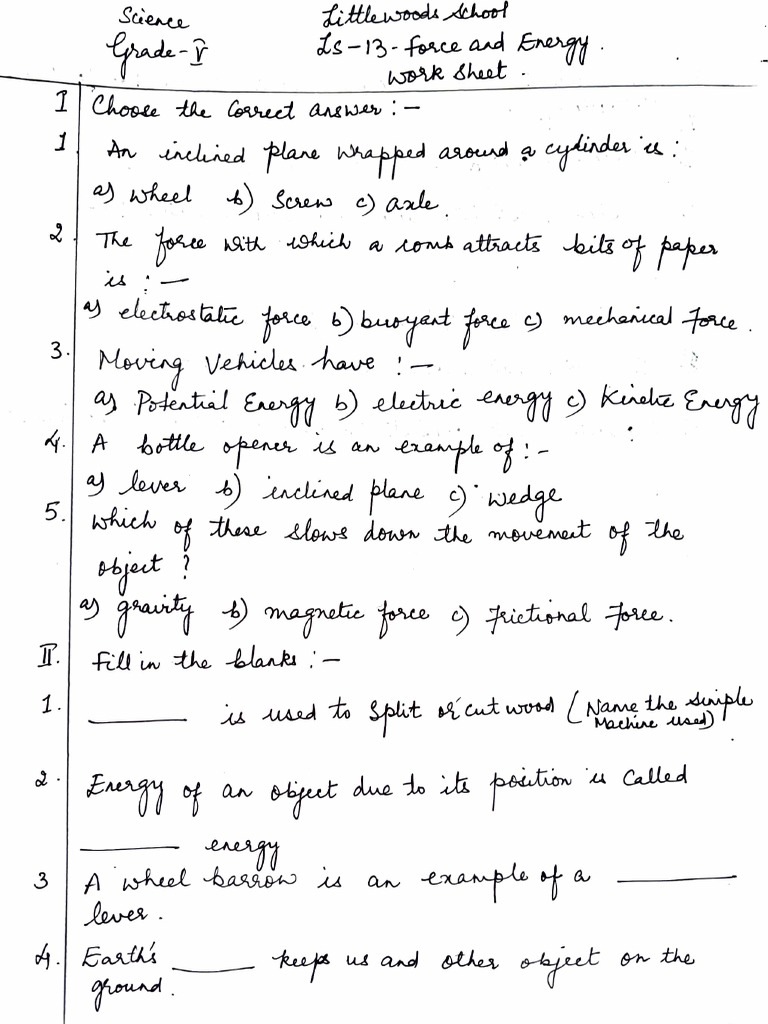 Science Littlewoods School
Grade-V LS-13-Force and Energy.
Work Sheet.
I Choose the Correct answer :-
1 An inclined plane wrapped around a cylinder is:
a) wheel b) Screw c) axle.
2. The force with which a comb attracts bits of paper
is :-
a) electrostatic force b) buoyant force c) mechanical Force.
3. Moving Vehicles have :-
a) Potential Energy b) electric energy c) Kinetic Energy
4. A bottle opener is an example of :-
a) lever b) inclined plane c) wedge
5. Which of these slows down the movement of the
object ?
a) gravity b) magnetic force c) Frictional Force.
II. Fill in the blanks :-
1. ______ is used to Split or cut wood (Name the simple
Machine used)
2. Energy of an object due to its position is Called
______ energy
3 A wheel barrow is an example of a ______
lever.
4. Earth's ______ keeps us and other object on the
ground.